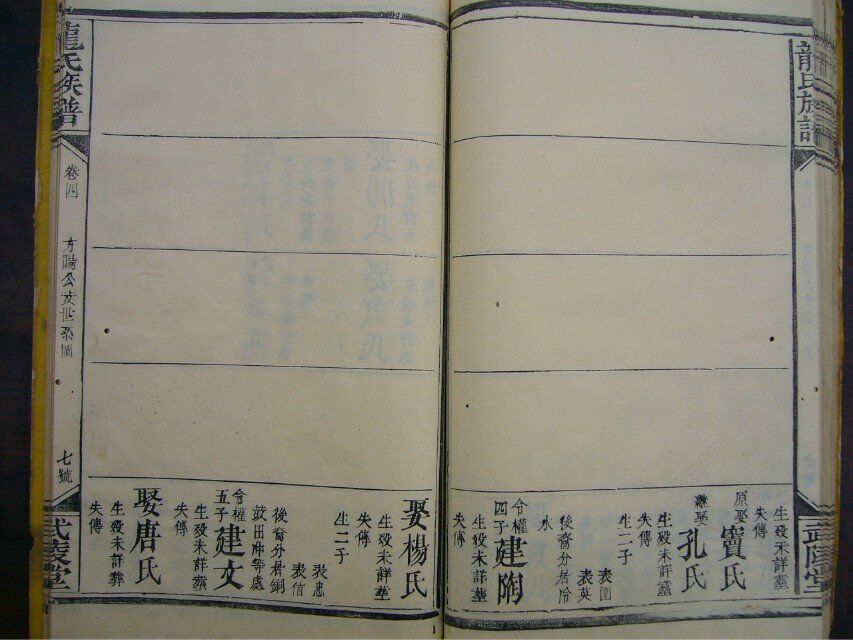 龍氏族譜
武陵堂
生殁未詳塟
失傳
原娶竇氏
繼娶孔氏
生殁未詳塟
失傳
生二子
表圍
表英
後裔分居
水
令權四子建陶
生殁未詳塟
失傳
娶楊氏
生殁未詳塟
失傳
生二子
表忠
表信
後裔分居銅
鼓田冲等處
令權五子建文
生殁未詳塟
失傳
娶唐氏
生殁未詳葬
失傳
龍氏族譜
卷四
方陽公支世系圖
七號
武陵堂